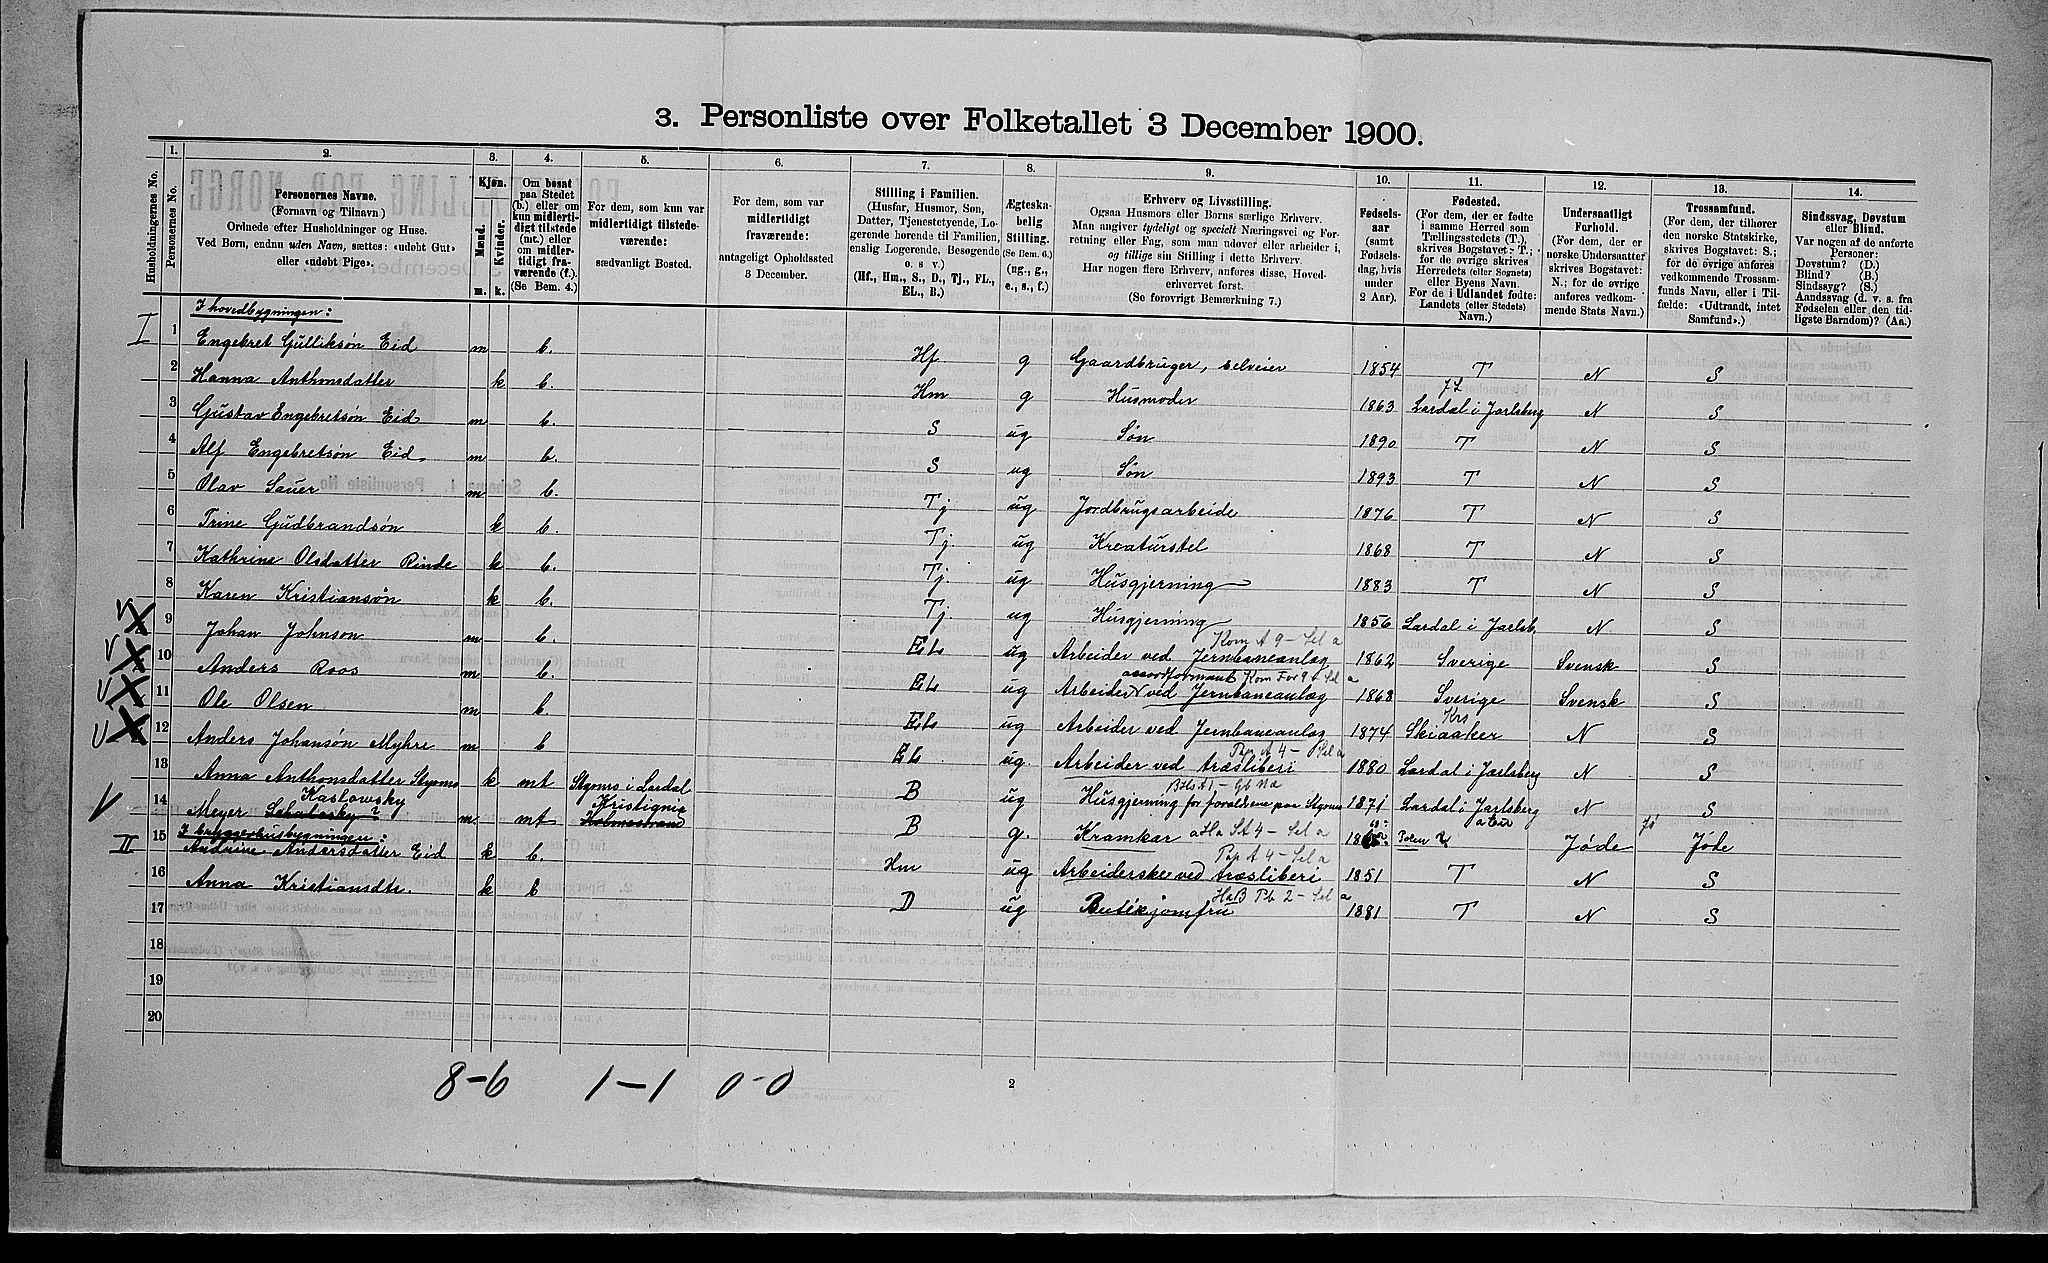 3. Personliste over Folketallet 3 December 1900.
Husholdningernes No.
1. Personernes No.
2. Personernes Navne.
(Fornavn og Tilnavn)
Ordnede efter Husholdninger og Huse.
Ved Børn, endnu uden Navn, sættes: «udøbt Gut»
eller «udøbt Pige».
3. Kjøn.
Mænd. Kvinder.
m. k.
4. Om bosat
paa Stedet
(b.) eller om
kun midlerti-
digt tilstede
(mt.) eller
om midler-
tidigt fra-
værende (f.).
(Se Bem. 4.)
5. For dem, som kun var
midlertidigt tilstede-
værende:
sædvanligt Bosted.
6. For dem, som var
midlertidigt
fraværende:
antageligt Opholdssted
3 December.
7. Stilling i Familien.
(Husfar, Husmor, Søn,
Datter, Tjenestetyende, Lo-
gerende hørende til Familien,
enslig Logerende, Besøgende
o. s. v.)
(Hf., Hm., S., D., Tj., FL.,
EL., B.)
8. Ægteska-
belig
Stilling.
(Se Bem. 6.)
(ug., g.,
e., s., f.)
9. Erhverv og Livsstilling.
Ogsaa Husmors eller Børns særlige Erhverv.
Man angiver tydeligt og specielt Næringsvei og For-
retning eller Fag, som man udøver eller arbeider i,
og tillige sin Stilling i dette Erhverv.
Har nogen flere Erhverv, anføres disse, Hoved-
erhvervet først.
(Se forøvrigt Bemærkning 7.)
10. Fødsels-
aar
(samt
Fødsels-
dag, hvis
under
2 Aar).
11. Fødested.
(For dem, der er fødte
i samme Herred som
Tællingsstedets (T.),
skrives Bogstavet: T.;
for de øvrige skrives
Herredets (eller Sognets)
eller Byens Navn.
For de i Udlandet fødte:
Landets (eller Stedets)
Navn.)
12. Undersaatligt
Forhold.
(For dem, der er
norske Undersaatter
skrives Bogstavet:
N.; for de øvrige
anføres vedkom-
mende Stats Navn.)
13. Trossamfund.
(For dem, der tilhører
den norske Statskirke,
skrives Bogstavet: S.;
for de øvrige anføres
vedkommende Trossam-
funds Navn, eller i Til-
fælde: «Udtraadt, intet
Samfund».)
14. Sindssvag, Døvstum
eller Blind.
Var nogen af de anførte
Personer:
Døvstum? (D.)
Blind? (B.)
Sindssyg? (S.)
Aandssvag (d. v. s. fra
Fødselen eller den tid-
ligste Barndom)? (Aa.)
I hovedbygningen:
I 1 Engebret Gulliksøn Eid m b. Hf g Gaardbruger, selveier 1854 T N S
2 Hanna Anthonsdatter k b. Hm g Husmoder 1863 JL Lardal i Jarlsberg N S
3 Gustav Engebretsøn Eid m b. S ug Søn 1890 T N S
4 Alf Engebretsøn Eid m b. S ug Søn 1893 T N S
5 Olav Sauer m b. Tj ug Jordbrugsarbeide 1876 T N S
6 Trine Gudbrandsøn k b. Tj. ug Kreaturstel 1868 T N S
7 Kathrine Olsdatter Rinde k b. Tj. ug Husgjerning 1883 T N S
8 Karen Kristiansøn k b. Tj ug Husgjerning 1856 Lardal i Jarlsb. N S
9 Johan Johnson m b. EL ug Arbeider ved Jernbaneanlæg Kom A 9 - Sel a 1862 Sverige Svensk S
10 Anders Roos m b. EL ug Arbeider ved Jernbaneanlæg 1868 Sverige Svensk S
11 Ole Olsen m b. EL ug Arbeider ved Jernbaneanlæg 1874 Skiaaker Krs N S
12 Anders Johansøn Myhre m b EL ug. Arbeider ved træsliberi Pap A 4 - Sel a 1880 Lardal i Jarlsberg N S
13 Anna Anthonsdatter Styrmo k mt Styrmo i Lardal B ug Husgjerning for forældrene paa Styrmo 1871 Lardal i Jarlsberg N S
14 Meyer Kaslowsky m mt Kristignia Holmestrand B g. Kramkar St 4 - Sel a Polen Jøde Jøde
I bryggerhusbygningen:
II 15 Andrine Andersdatter Eid k b. Hm ug Arbeiderske ved træsliberi Pap A 4 - Sel a 1851 T N S
16 Anna Kristiansdtr. k b D ug Butikjomfru Ha B Pb 2 - Sel a 1881 T N S
17
18
19
20
8-6 1-1 0-0
2